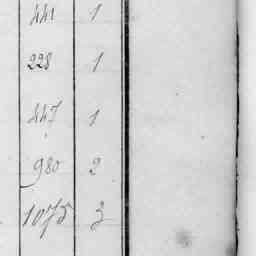 441 1
228 1
447 1
980 2
1075 3